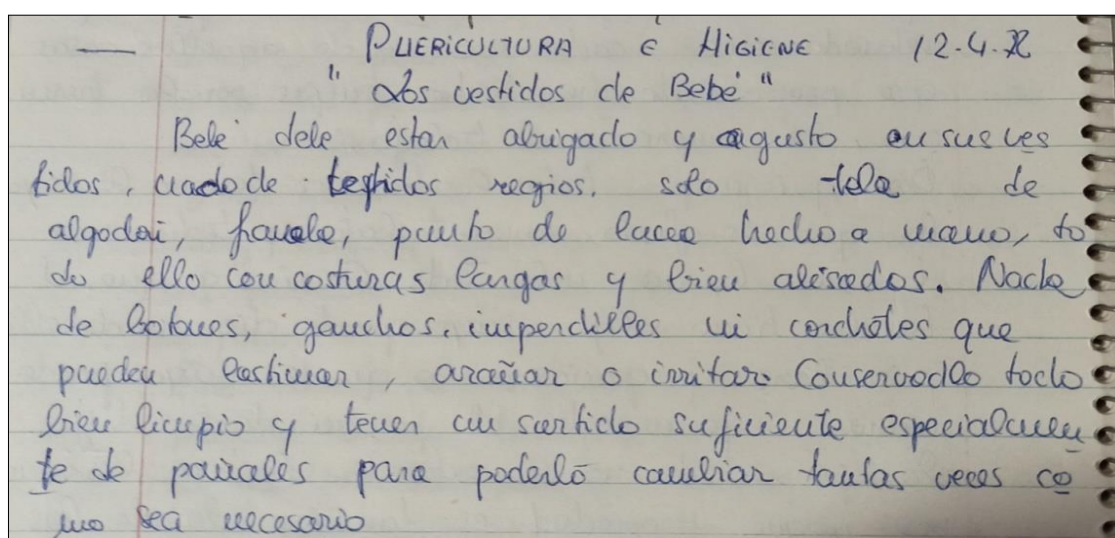 PUERICULTURA E HIGIENE 12.4.
"Los vestidos de Bebé"
Bebé debe estar abrigado y agusto en sus ves
tidos, nada de tejidos recios. solo tela de
algodón, franela, punto de lacea hecho a mano, to
do ello con costuras largas y bien alisados. Nada
de botones, ganchos, imperdilles ni corchetes que
pueden lastimar, arañar o irritar. Conservadlo todo
bien limpio y tener un surtido suficiente especialmen
te de pañales para poderlo cambiar tantas veces co
mo sea necesario